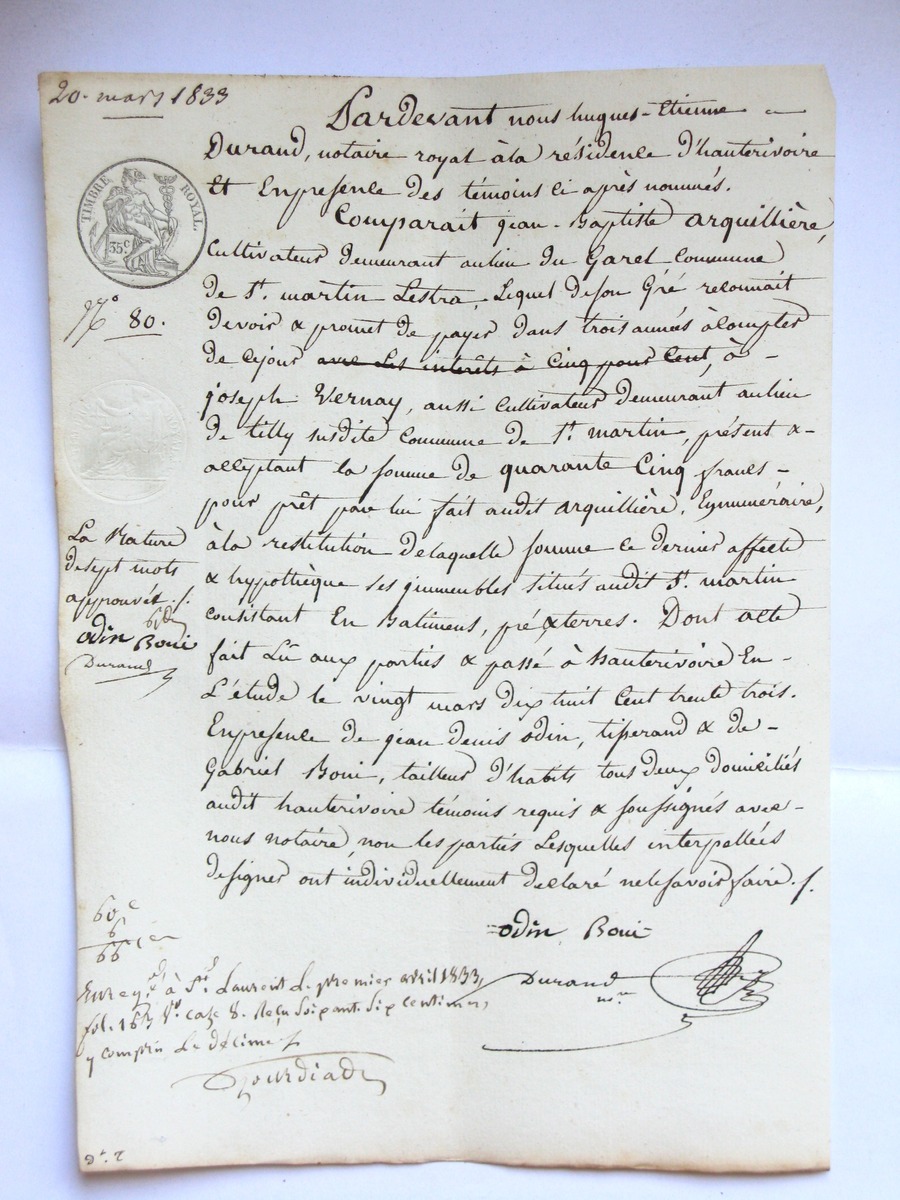 20. mars 1833
Pardevant nous hugues-Etienne
Durand, notaire royal à la résidence d'hauterivoire
Et En présence des témoins ci après nommés.
Comparait jean-Baptiste arquillière,
Cultivateur demeurant au lieu du Garel Commune
de St. martin Lestra, Lequel de son Gré reconnait
devoir & promet de payer dans trois années à compter
de ce jour avec les intérêts à Cinq pour Cent, à -
joseph Vernay, aussi Cultivateur demeurant au lieu
de tilly susdite Commune de St. martin, présent & -
acceptant la somme de quarante Cinq francs -
pour prêt par lui fait audit arquillière, En numéraire,
à la restitution de laquelle somme ce dernier affecte
& hypothèque ses immeubles situés audit St. martin
consistant En Batimens, pré & terres. Dont acte
fait Lu aux parties & passé à hauterivoire En -
L'étude le vingt mars dix huit Cent trente trois.
En présence de jean denis odin, tisserand & de -
Gabriel Boni, tailleur d'habits tous deux domiciliés
audit hauterivoire témoins requis & soussignés avec -
nous notaire, non les parties Lesquelles interpellées
de signer ont individuellement declaré ne le savoir faire. /.
odin Boni
Durand
nre
TIMBRE ROYAL.
35 c
No 80.
La Rature
de sept mots
approuvée. /.
odin Boni
Durand
60 c
6
66 c
Enregé. à St. Laurent Le premier avril 1833,
fol. 163 Vo. case 8. Reçu soixante six centimes,
y compris Le décime